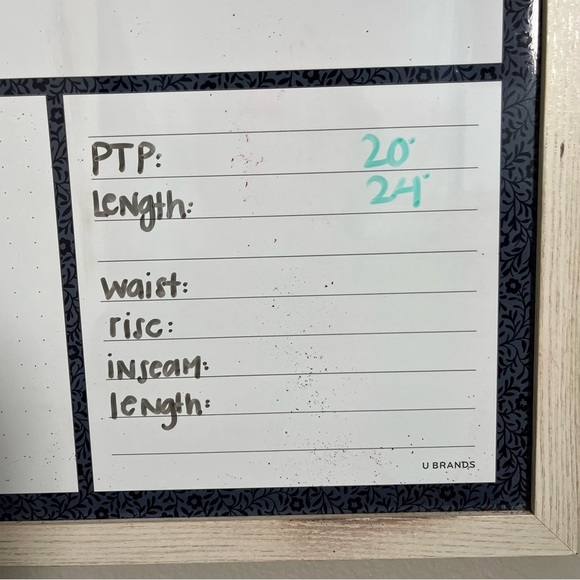 PTP: 20"
Length: 24"
waist:
rise:
inseam:
length:
U BRANDS